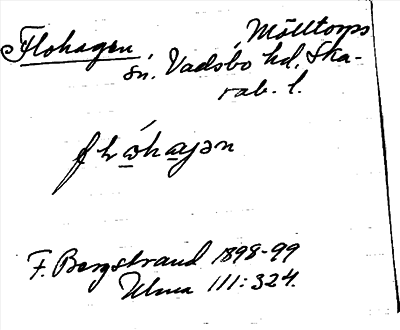 Flohagen, Mölltorps
sn. Vadsbo hd, Ska-
rab. l.
F. Bergstrand 1898-99
Ulma 111:324.